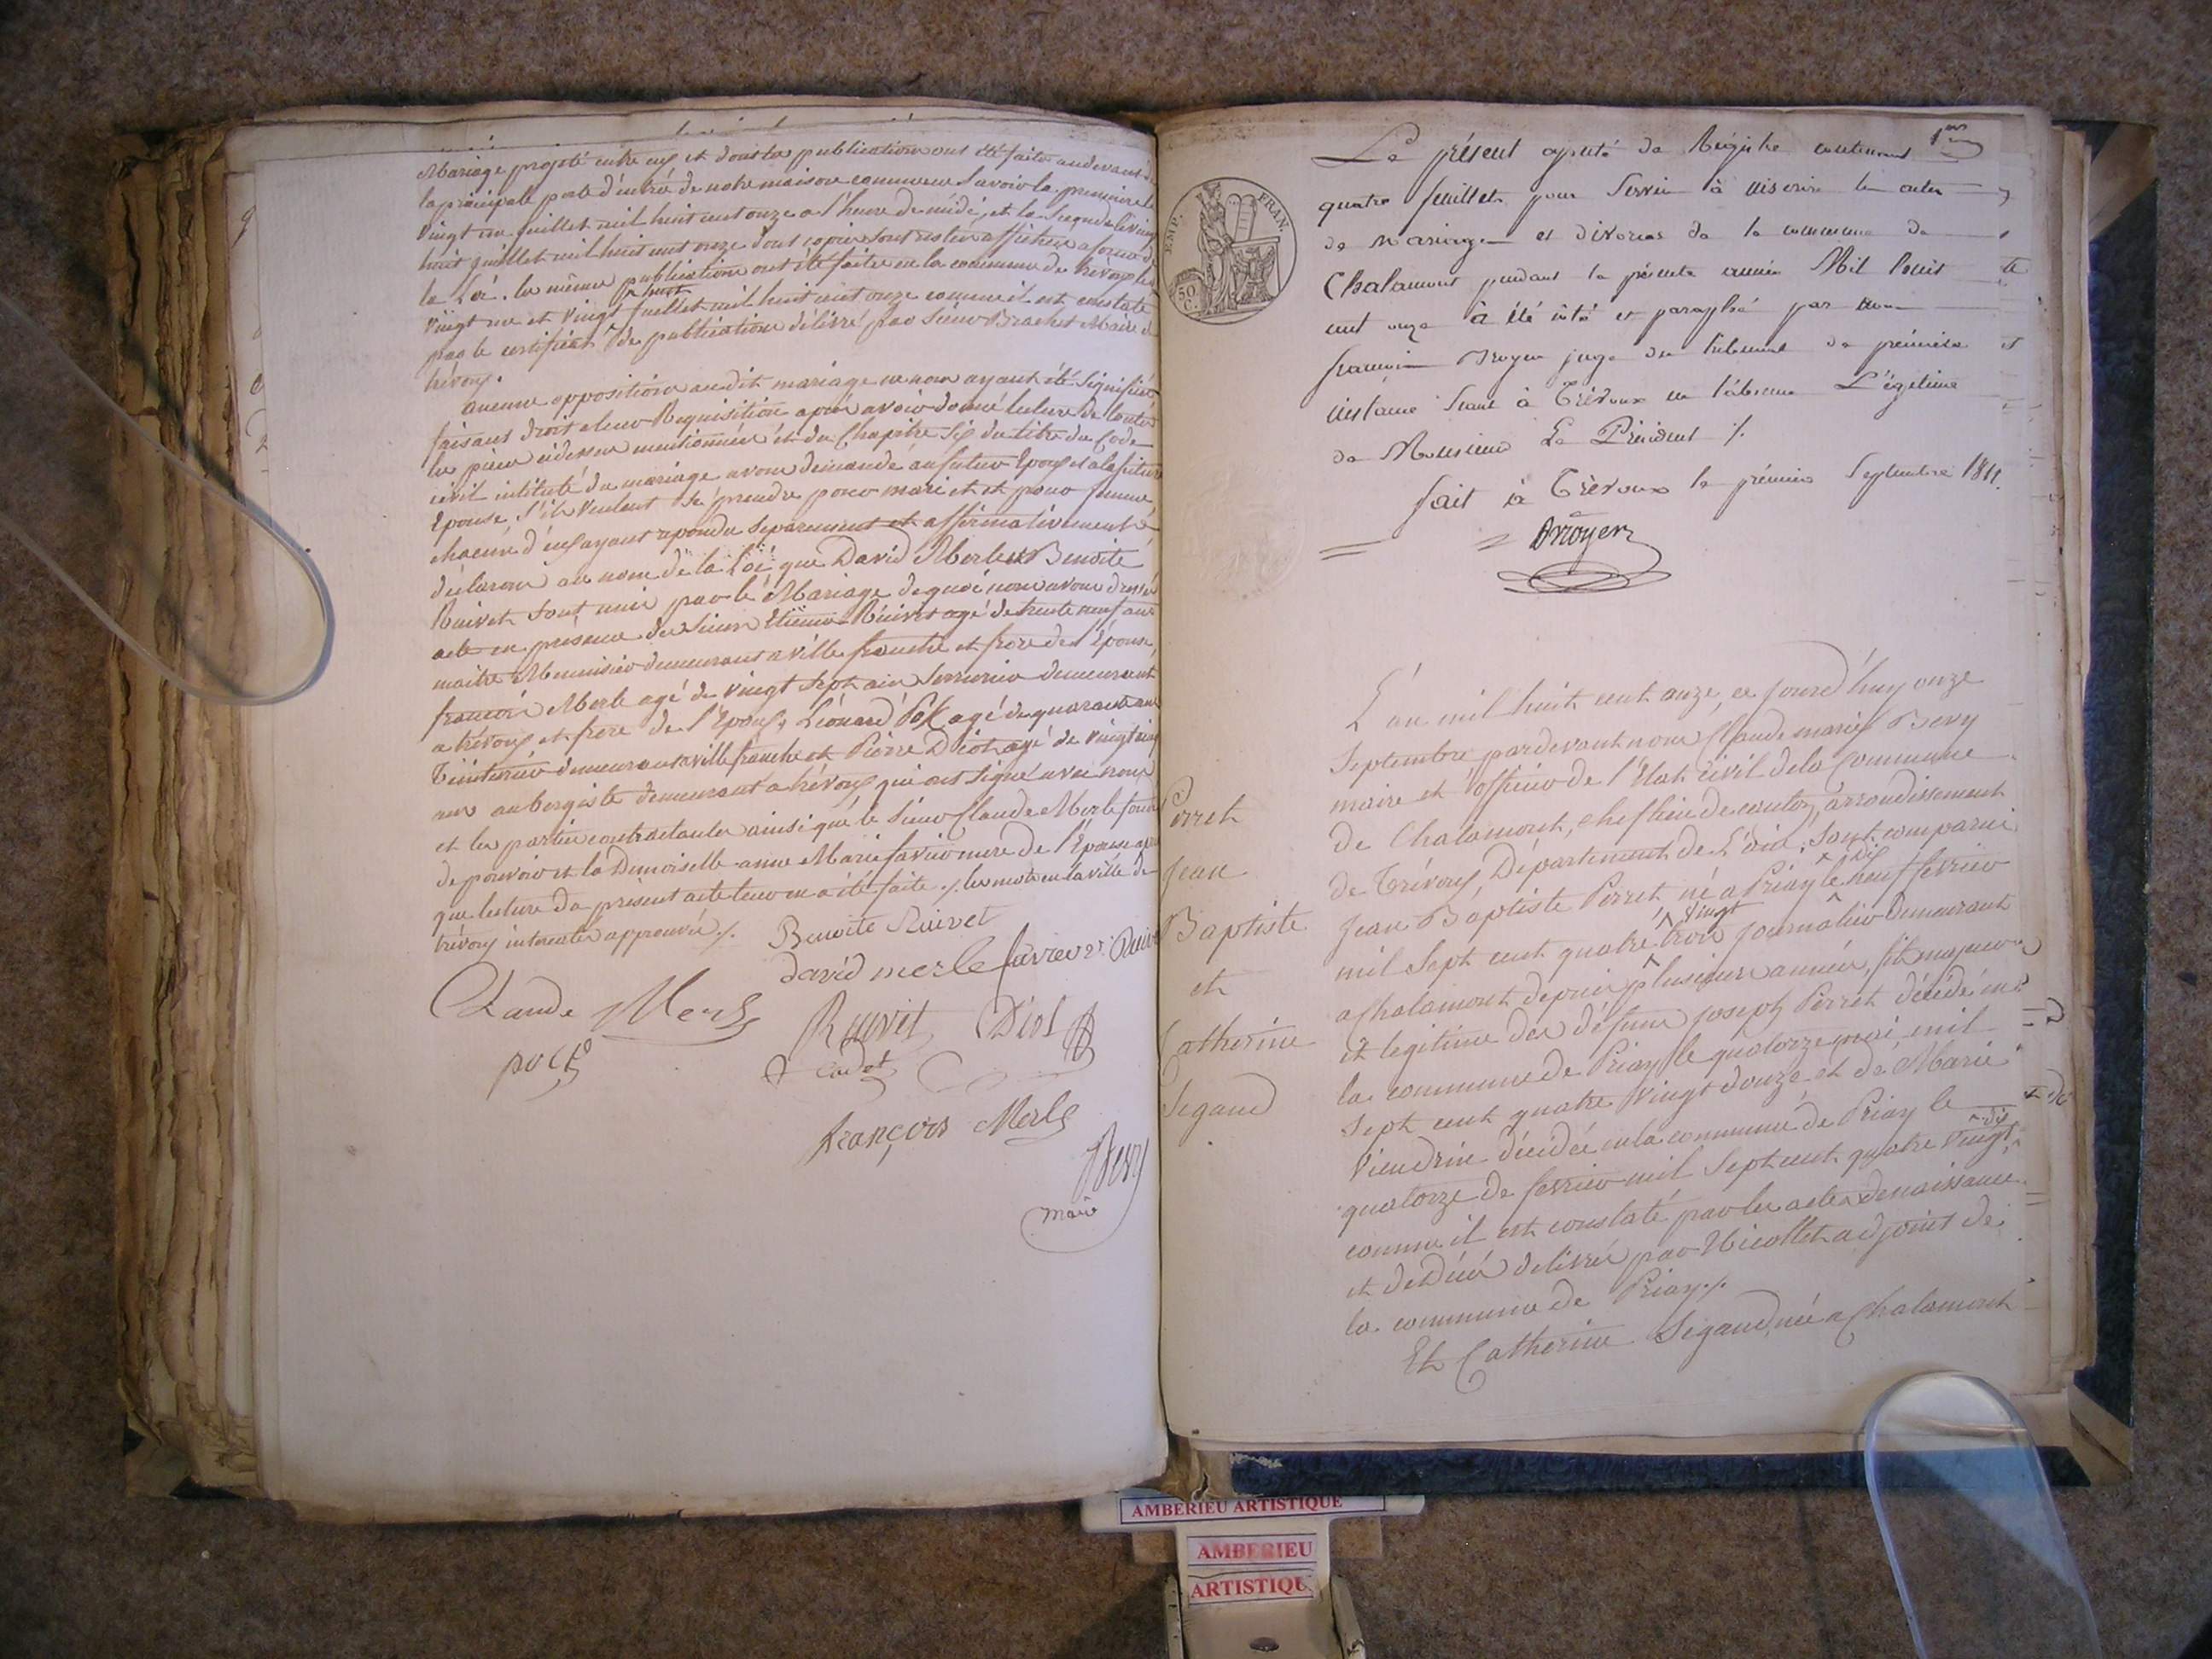 Mariage projeté entre eux et dont les publications ont été faites audevant de
la principale porte d'entrée de notre maison commune Savoir la premiere le
vingt un juillet mil huit cent onze a l'heure de midi, et la Seconde le vingt
huit juillet mil huit cent onze dont copies sont restées affichées a forme de
la Loi. les mêmes publications ont été faites en la commune de trévoux les
vingt un et vingt huit juillet mil huit cent onze comme il est constaté
par le certificat de publications délivré par Sieur Brachet Maire de
trévoux.
aucune opposition audit mariage ne nous ayant été Signifiée
faisant droit a leur Requisition après avoir donné lecture de toutes
les pièces cidessus mentionnées et du Chapitre Six du titre du Code
civil intitulé du mariage avons demandé au futur Epoux et a la future
Epouse, S'ils veulent se prendre pour mari et pour femme,
chacun d'eux ayant repondu Separement et affirmativement
déclarons au nom de la Loi que David Merle et Benoite
Ruivet sont unis par le Mariage de quoi nous avons dressé
acte en présence des Sieurs Etienne Ruivet agé de trente neuf ans
maitre Menuisier demeurant a ville franche et frere de l'Epouse,
francois Merle agé de vingt Sept ans Serrurier demeurant
a trévoux et frere de l'Epoux, Léonard agé de quarante ans
Teinturier demeurant a ville franche et Pierre Diot agé de vingt
ans aubergiste demeurant a trévoux qui ont Signé avec nous
et les parties contractantes ainsi que le Sieur Claude Merle fondé
de pouvoir et la Demoiselle anne Marie favier mere de l'Epouse après
que lecture du présent acte leur en a été faite ./. les mots en la ville de
trévoux intercalés approuvés ./.
Benoite Ruivet
david merle favier
Claude Merle
Ruivet Diot
cadet
françois Merle
Bevy
maire
1er
Le présent cahier de Registre contenant
quatre feuillets pour Servir à inscrire les actes
de mariages et divorces de la commune de
Chalamont pendant la présente année Mil huit
cent onze à été coté et paraphé par nous
francois Broyer juge du tribunal de première
instance séant à Trévoux en l'absence Légitime
de Monsieur Le Président ./.
fait à Trévoux le premier Septembre 1811.
Broyer
EMP. FRAN.
50 C.
Perret
Jean
Baptiste
et
Catherine
Segaud
L'an mil huit cent onze, ce jourd'huy onze
Septembre pardevant nous Claude marie Bevy
maire et officier de l'Etat civil de la Commune
de Chalamont, chef lieu de canton, arrondissement
de Trévoux, Département de L'ain; Sont comparus
Jean Baptiste Perret né a Priay le dix neuf fevrier
mil Sept cent quatre vingt trois journalier demeurant
a Chalamont depuis plusieurs années, fils majeur
et legitime des défunts joseph Perret décédé en
la commune de Priay le quatorze mai mil
Sept cent quatre vingt douze, et de Marie
Vieudrin décédée en la commune de Priay le
quatorze de fevrier mil Sept cent quatre vingt dix
comme il est constaté par les actes de naissance
et de Décès delivrés par Nicollet adjoint de
la commune de Priay ./.
Et Catherine Segaud, née a Chalamont
AMBERIEU ARTISTIQUE
AMBERIEU
ARTISTIQU